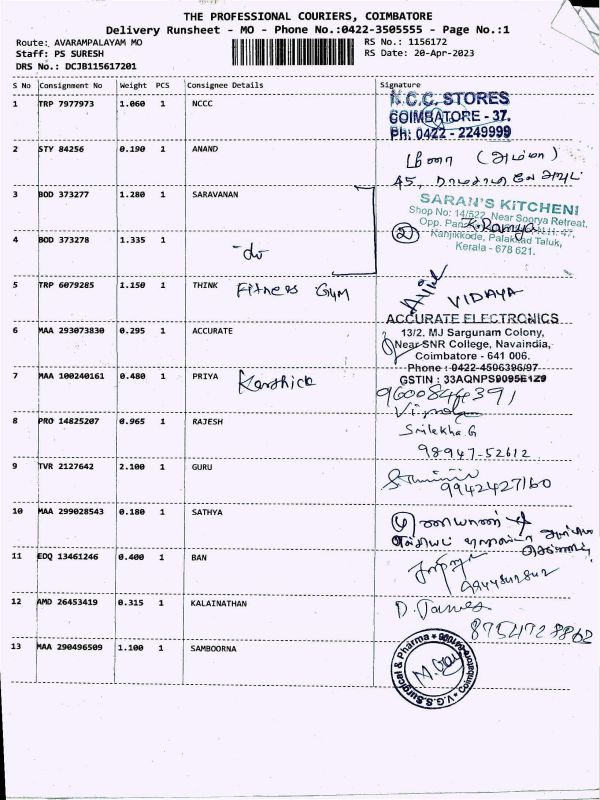 THE PROFESSIONAL COURIERS, COIMBATORE
Delivery Runsheet - MO - Phone No.:0422-3505555 - Page No.:1
Route: AVARAMPALAYAM MO
Staff: PS SURESH
DRS No.: DCJB115617201
RS No.: 1156172
RS Date: 20-Apr-2023
S No Consignment No Weight PCS Consignee Details Signature
1 TRP 7977973 1.060 1 NCCC
N.C.C. STORES
COIMBATORE - 37.
Ph: 0422 - 2249999
2 STY 84256 0.190 1 ANAND
மீனா (அம்மா)
45,
3 BOD 373277 1.280 1 SARAVANAN
SARAN'S KITCHENI
Shop No: 14/522, Near Soorya Retreat,
Opp. N.H-47,
Kanjikkode, Palakkad Taluk,
Kerala - 678 621.
K.Ramya
4 BOD 373278 1.335 1
-do
5 TRP 6079285 1.150 1 THINK Fitness Gym
VIDAYA
6 MAA 293073830 0.295 1 ACCURATE
ACCURATE ELECTRONICS
13/2. MJ Sargunam Colony,
Near SNR College, Navaindia,
Coimbatore - 641 006.
Phone : 0422-4506396/97
GSTIN : 33AQNPS9095E1Z9
7 MAA 100240161 0.480 1 PRIYA Karthick
9600844391
8 PRO 14825207 0.965 1 RAJESH
Srilekha G
98947-52612
9 TVR 2127642 2.100 1 GURU
9942427160
10 MAA 299028543 0.180 1 SATHYA
11 EDQ 13461246 0.400 1 BAN
12 AMD 26453419 0.315 1 KALAINATHAN
D. James
8754728862
13 MAA 290496509 1.100 1 SAMBOORNA
V.G.S.Surgical & Pharma * Coimbatore